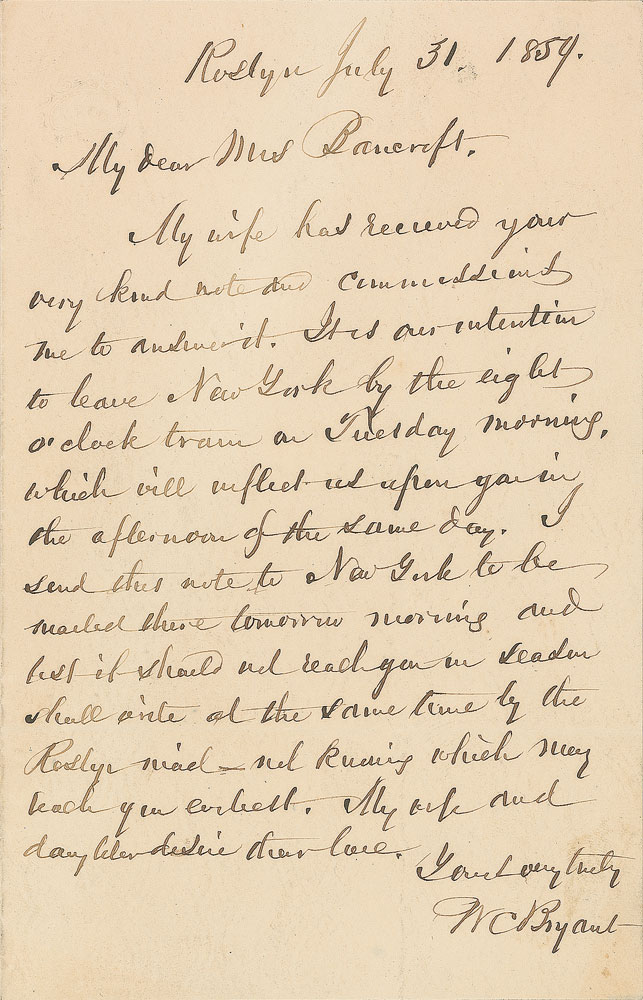 Roslyn July 31. 1859.
My dear Mrs Bancroft.
My wife has received your
very kind note and commissions
me to answer it. It is our intention
to leave New York by the eight
o'clock train on Tuesday morning,
which will inflict us upon you in
the afternoon of the same day. I
send this note to New York to be
mailed there tomorrow morning and
lest it should not reach you in season
shall write at the same time by the
Roslyn mail – not knowing which may
reach you earliest. My wife and
daughter desire their love.
Yours very truly
W C Bryant